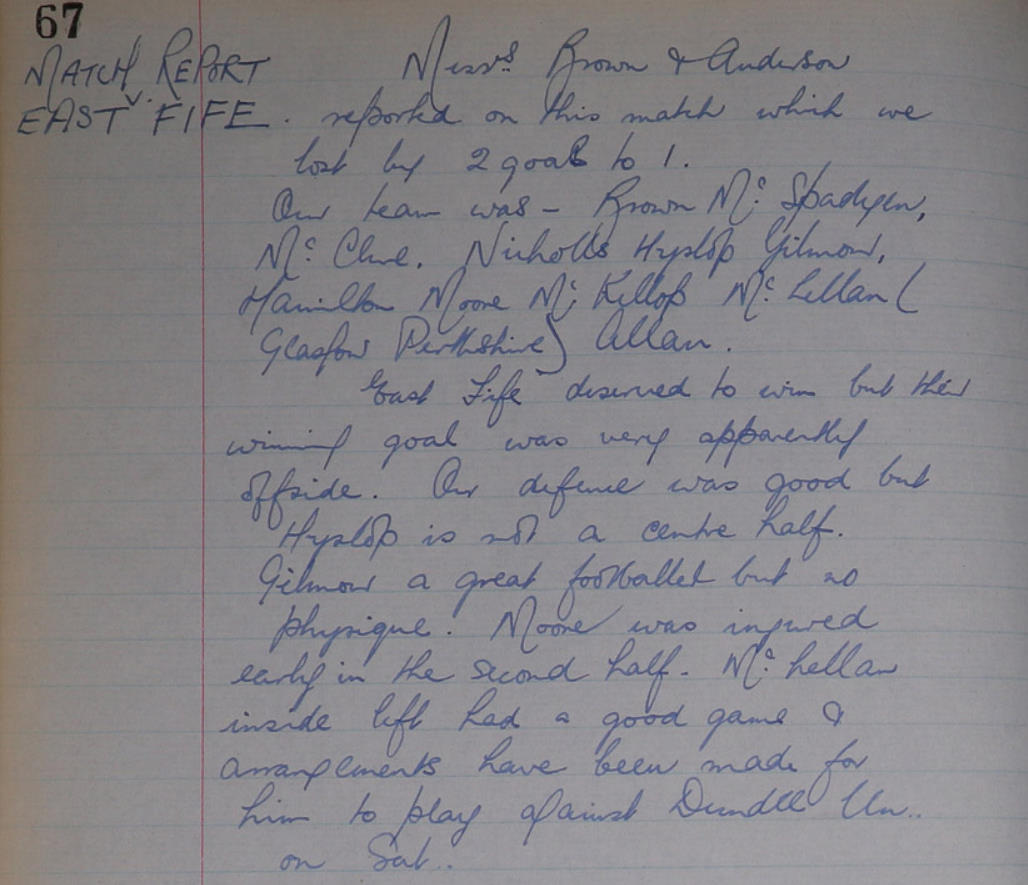 67
MATCH REPORT
v.
EAST FIFE.
Messrs Brown & Anderson
reported on this match which we
lost by 2 goals to 1.
Our team was - Brown Mc Spadyen,
Mc Clure. Nicholls Hyslop Gilmour,
Hamilton Moore Mc Killop Mc Lellan (
Glasgow Perthshire) Allan.
East Fife deserved to win but their
winning goal was very apparently
offside. Our defence was good but
Hyslop is not a centre half.
Gilmour a great footballer but no
physique. Moore was injured
early in the second half. Mc Lellan
inside left had a good game &
arrangements have been made for
him to play against Dundee Un..
on Sat..